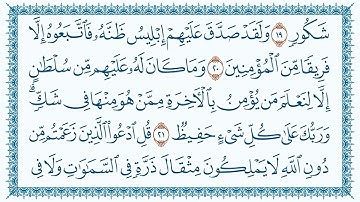 شَكُورٍ ١٩ وَلَقَدْ صَدَّقَ عَلَيْهِمْ إِبْلِيسُ ظَنَّهُۥ فَٱتَّبَعُوهُ إِلَّا
فَرِيقًا مِّنَ ٱلْمُؤْمِنِينَ ٢٠ وَمَا كَانَ لَهُۥ عَلَيْهِم مِّن سُلْطَٰنٍ
إِلَّا لِنَعْلَمَ مَن يُؤْمِنُ بِٱلْأَخِرَةِ مِمَّنْ هُوَ مِنْهَا فِى شَكٍّ ۗ
وَرَبُّكَ عَلَىٰ كُلِّ شَىْءٍ حَفِيظٌ ٢١ قُلِ ٱدْعُوا۟ ٱلَّذِينَ زَعَمْتُم مِّن
دُونِ ٱللَّهِ لَا يَمْلِكُونَ مِثْقَالَ ذَرَّةٍ فِى ٱلسَّمَٰوَٰتِ وَلَا فِى